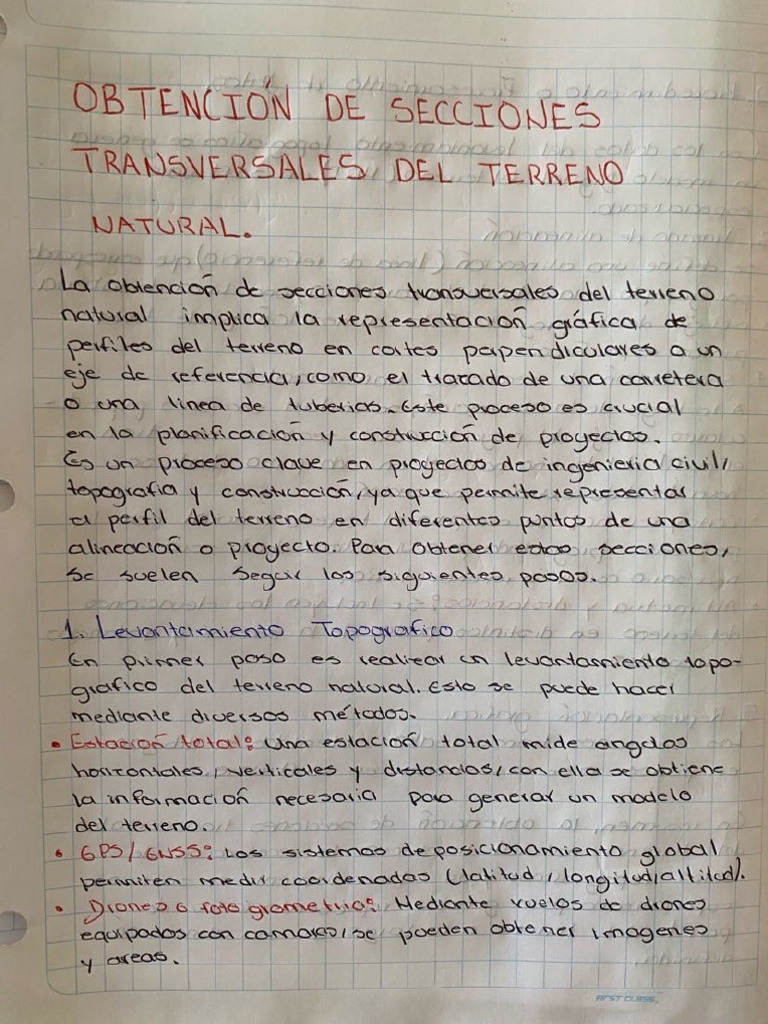 OBTENCIÓN DE SECCIONES
TRANSVERSALES DEL TERRENO
NATURAL.
La obtención de secciones transversales del terreno
natural implica la representación gráfica de
perfiles del terreno en cortes perpendiculares a un
eje de referencia, como el trazado de una carretera
o una línea de tuberias. Este proceso es crucial
en la planificación y construcción de proyectos.
Es un proceso clave en proyectos de ingenieria civil,
topografia y construcción, ya que permite representar
el perfil del terreno en diferentes puntos de una
alineación o proyecto. Para obtener estas secciones,
se suelen seguir los siguientes pasos.
1. Levantamiento Topografico
En primer paso es realizar un levantamiento topo-
grafico del terreno natural. Esto se puede hacer
mediante diversos métodos.
• Estación total: Una estación total mide angulos
horizontales, verticales y distancias, con ella se obtiene
la información necesaria para generar un modelo
del terreno.
• GPS/GNSS: Los sistemas de posicionamiento global
permiten medir coordenadas (latitud, longitud, altitud).
• Drones o fotogrametria: Mediante vuelos de drones
equipados con camaras, se pueden obtener imagenes
y areas.
FIRST CLASS.